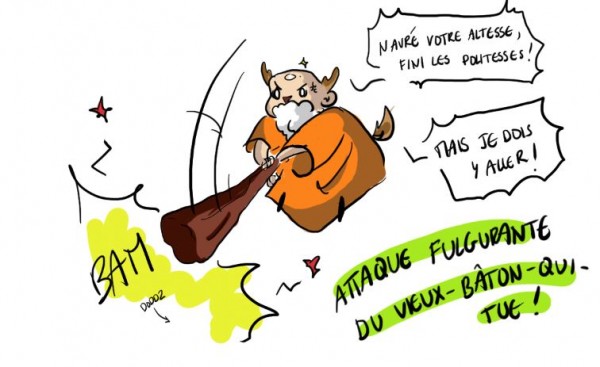 NAVRÉ VOTRE ALTESSE,
FINI LES POLITESSES!
MAIS JE DOIS
Y ALLER!
BAM
DODOZ
ATTAQUE FULGURANTE
DU VIEUX-BÂTON-QUI-
TUE!